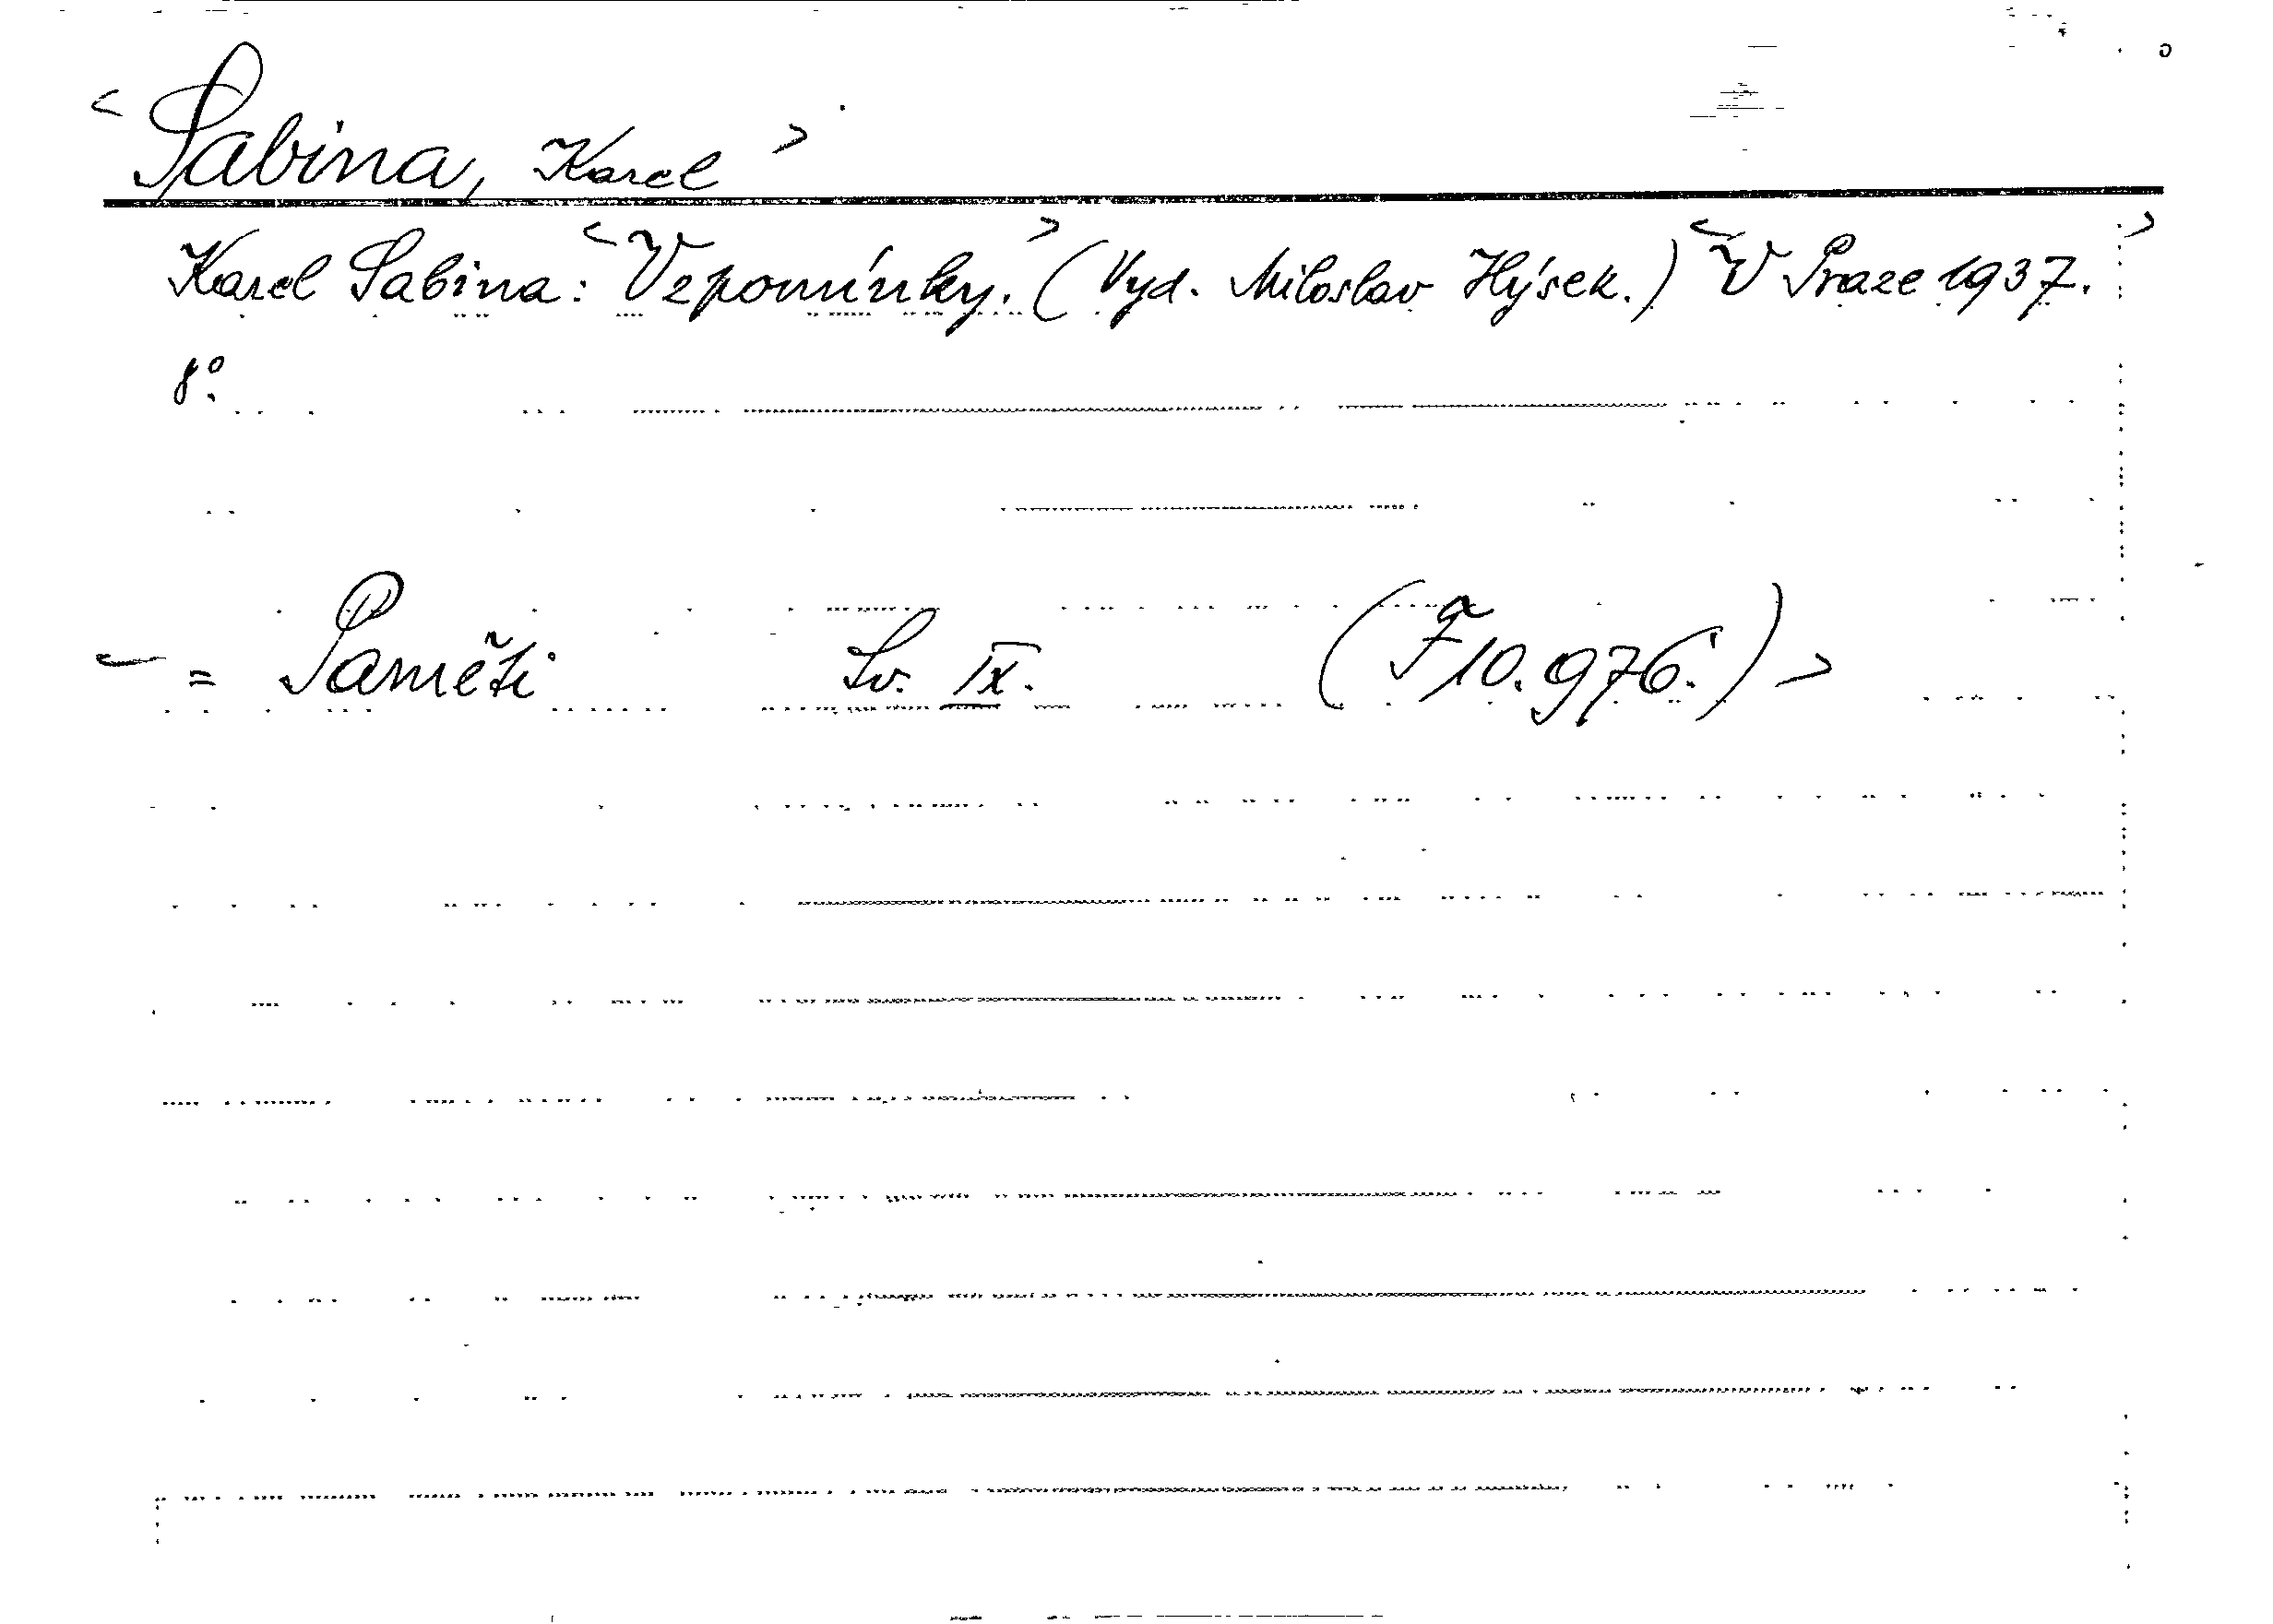 < Sabina, Karel >
Karel Sabina: < Vzpomínky. > (Vyd. Miloslav Hýsek.) < V Praze 1937. >
8°.
< = Paměti Sv. IX. (F 10.976.) >